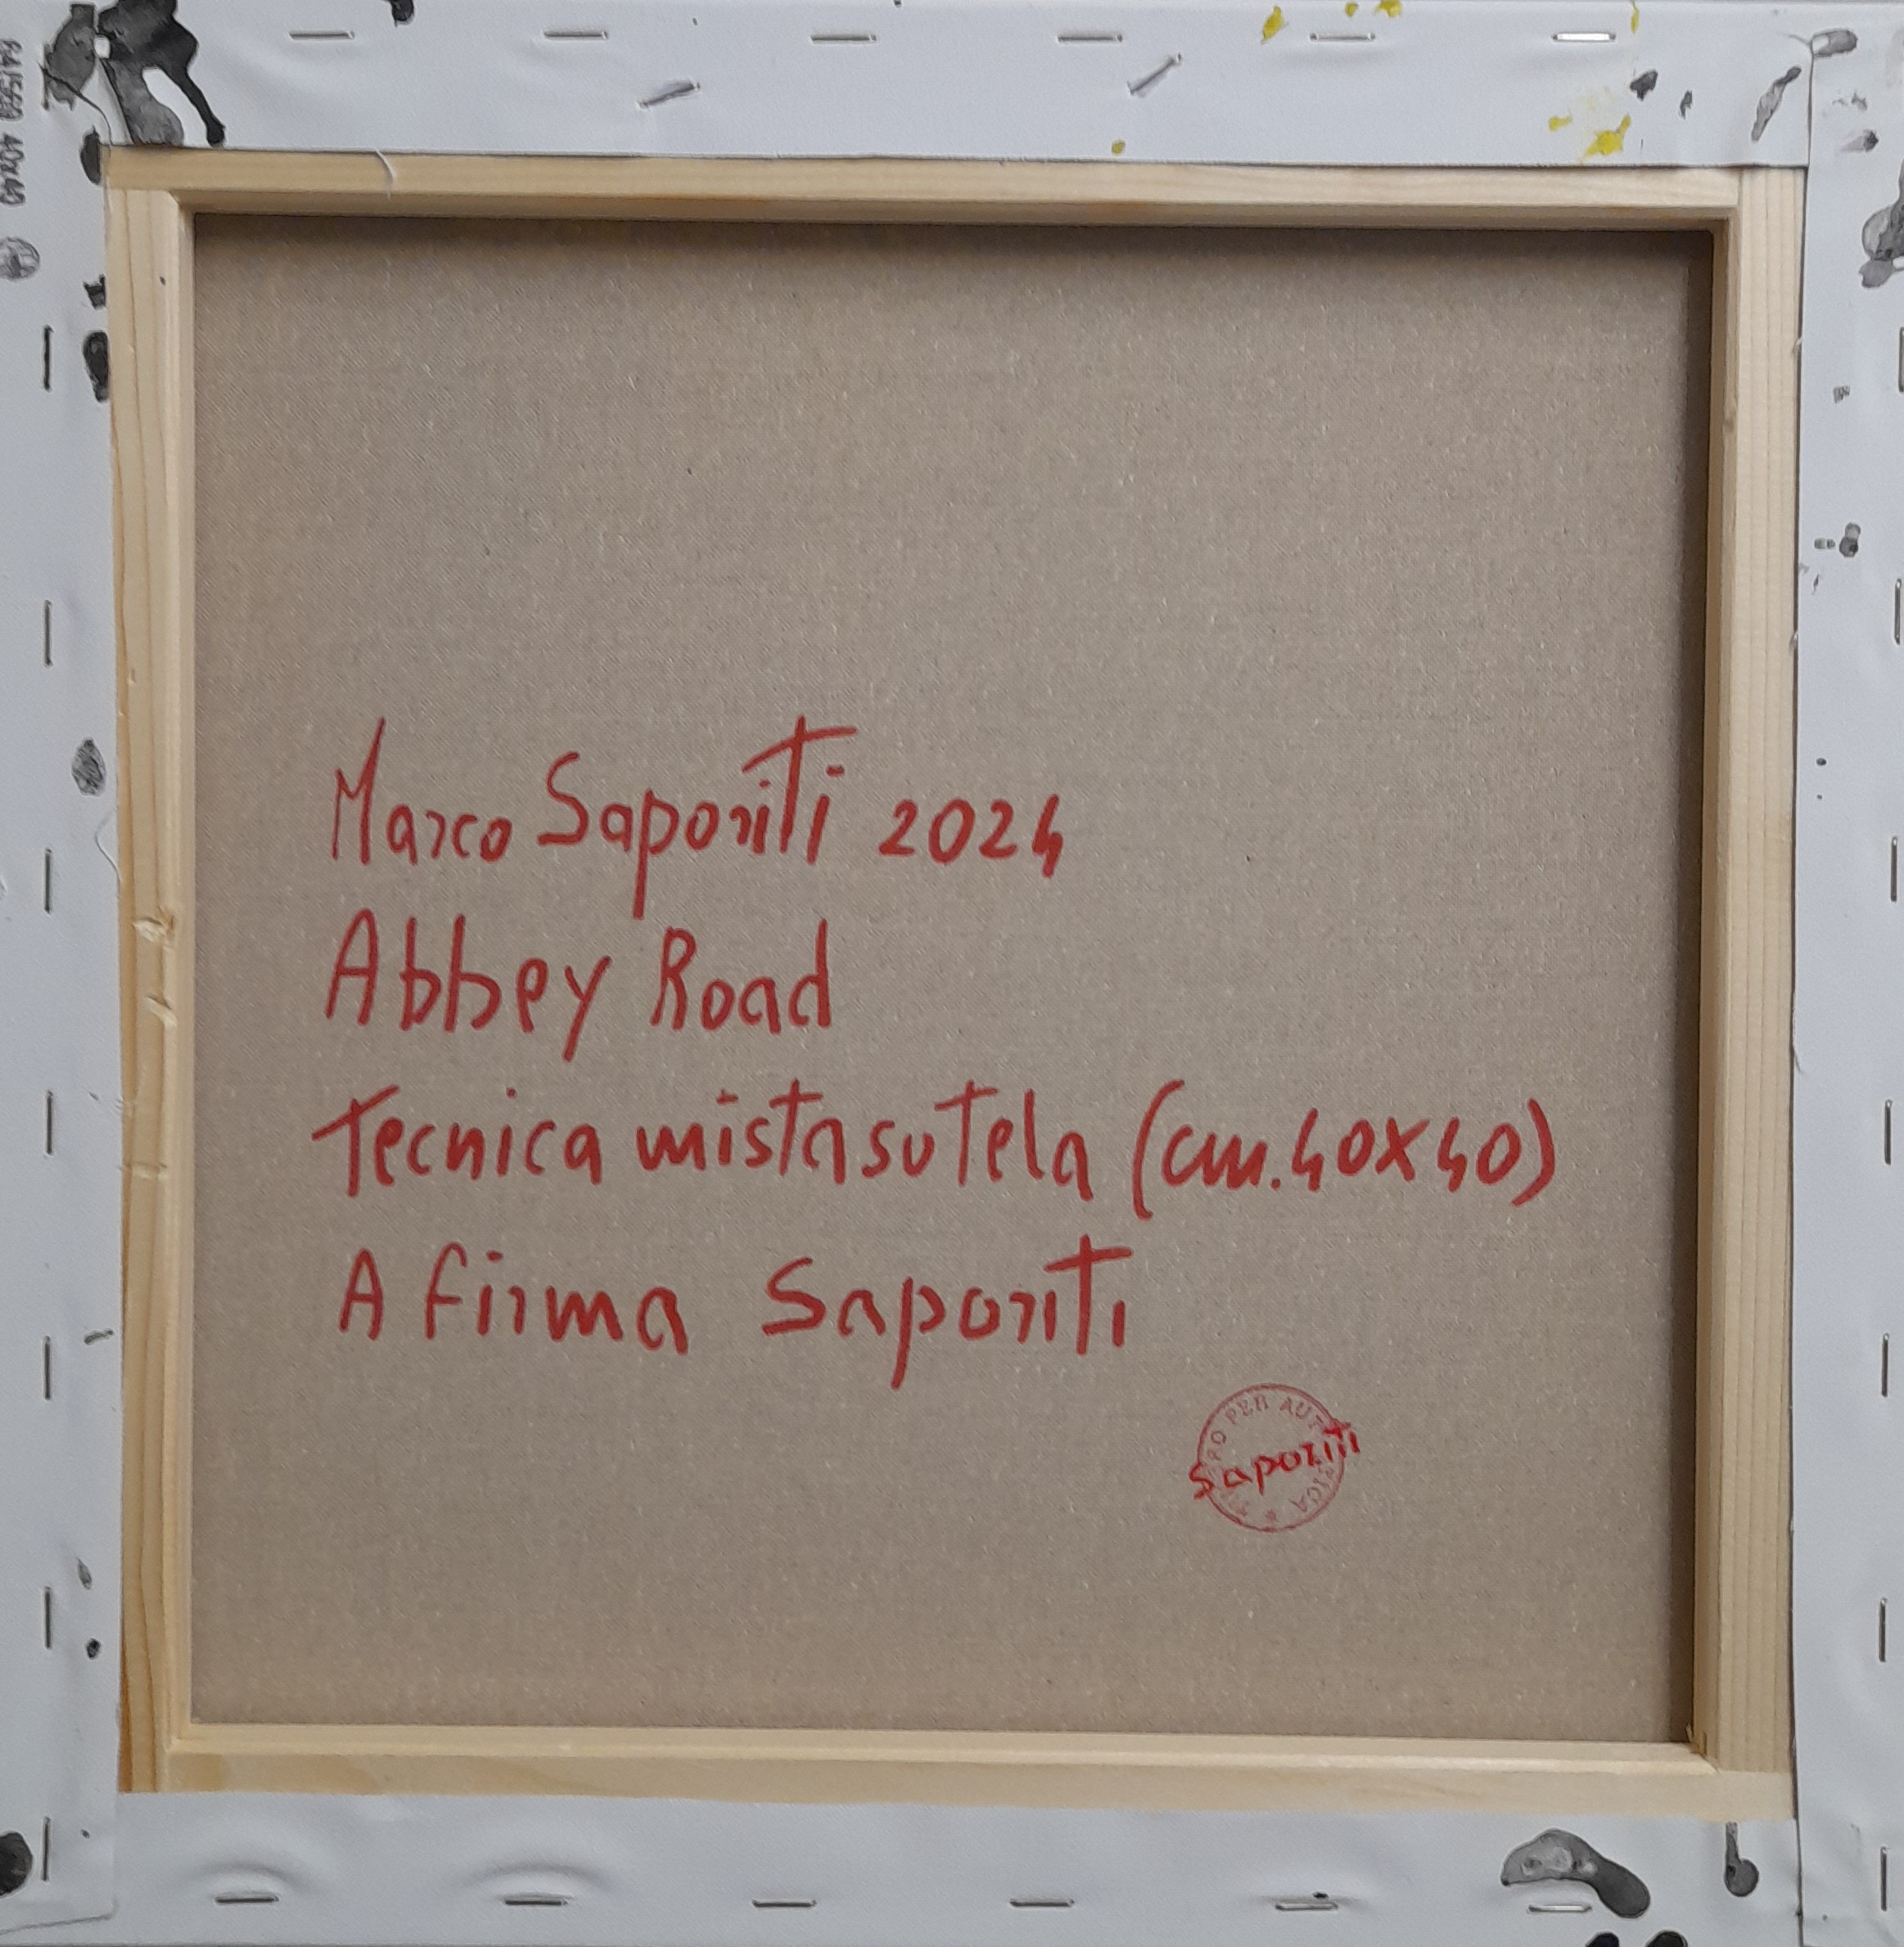 Marco Saporiti 2024
Abbey Road
Tecnica mista su tela (cm. 40x40)
A firma Saporiti
PER AUT
Saporiti
40x40